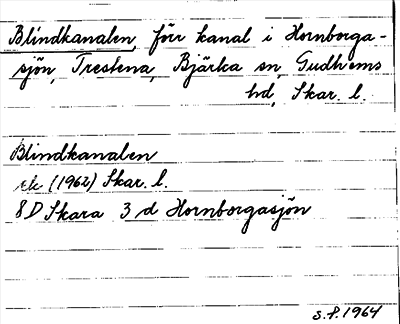 Blindkanalen, förr kanal i Hornborga-
sjön, Trestena, Bjärka sn, Gudhems
hd, Skar. l.
Blindkanalen
ek (1962) Skar. l.
8D Skara 3 d Hornborgasjön
S.F. 1964